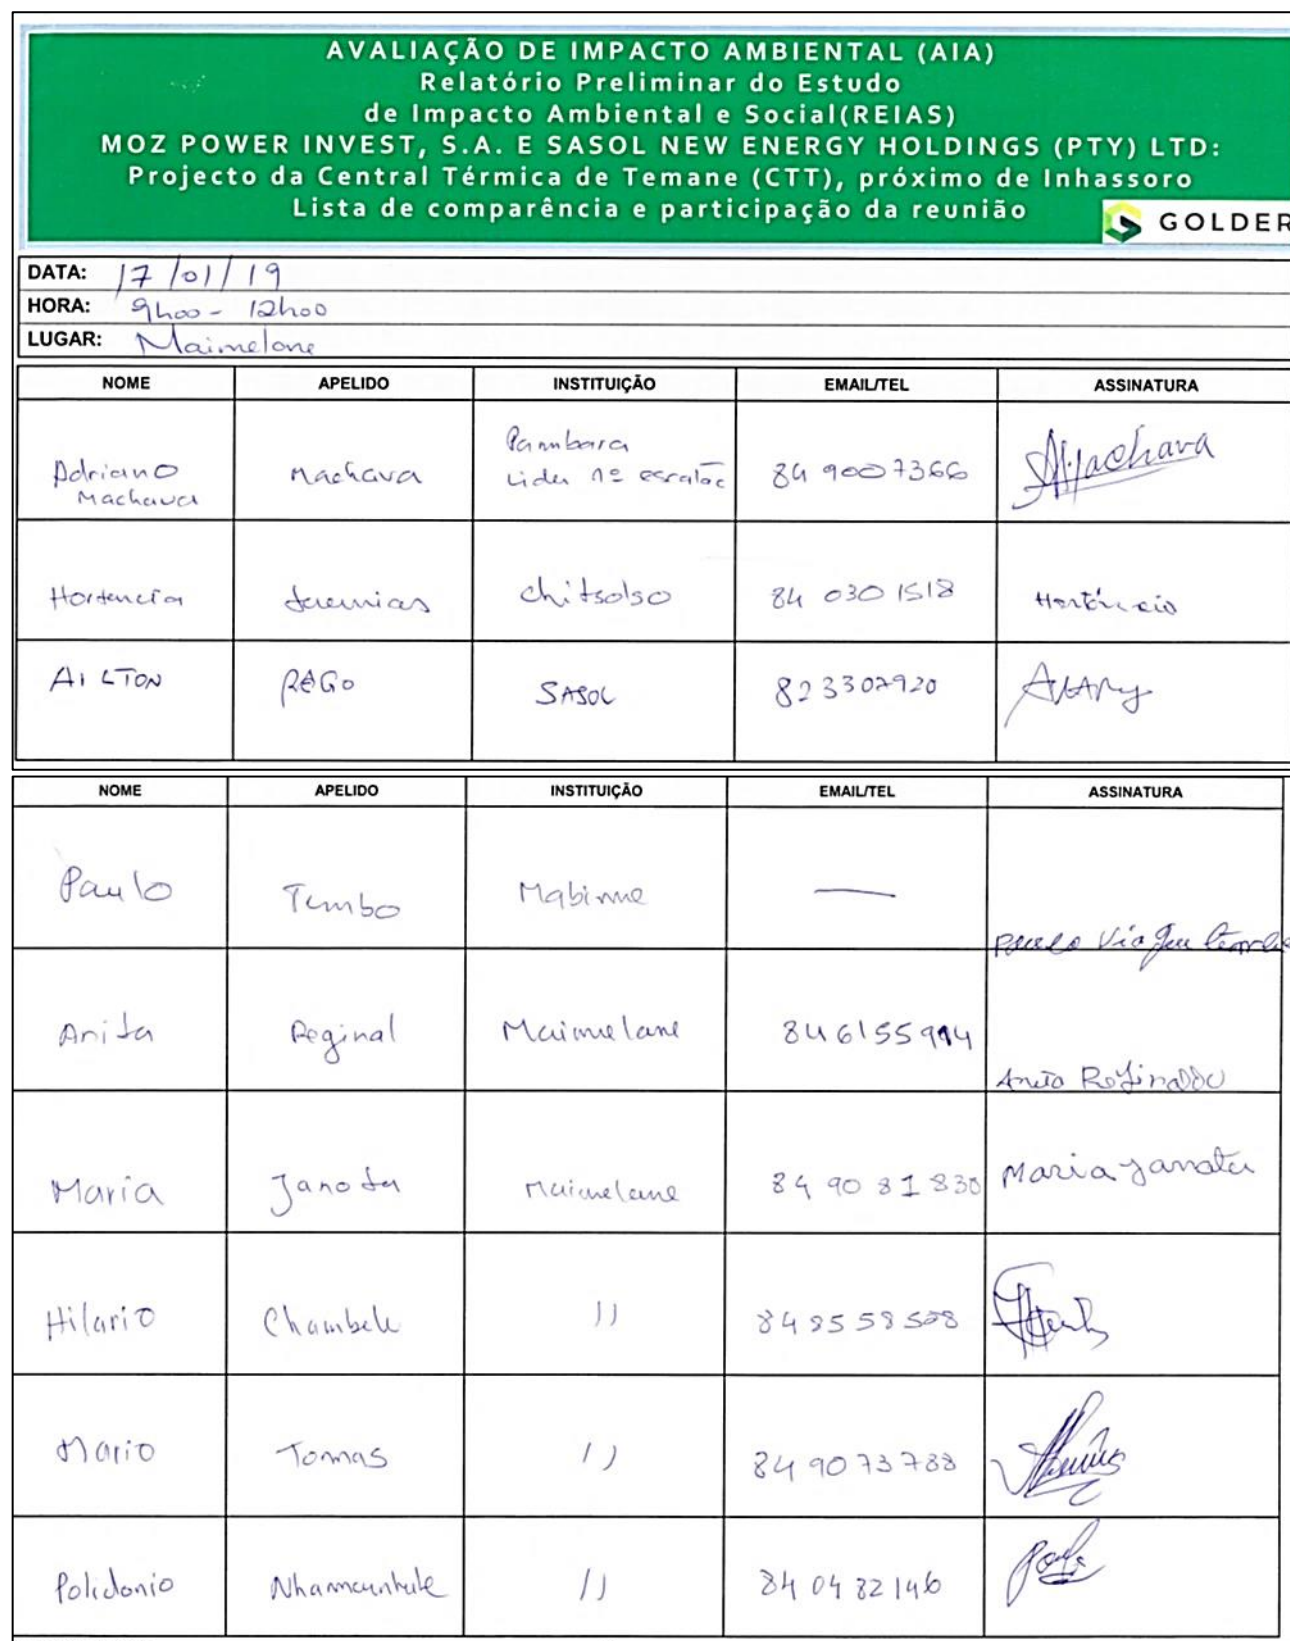 AVALIAÇÃO DE IMPACTO AMBIENTAL (AIA)
Relatório Preliminar do Estudo
de Impacto Ambiental e Social(REIAS)
MOZ POWER INVEST, S.A. E SASOL NEW ENERGY HOLDINGS (PTY) LTD:
Projecto da Central Térmica de Temane (CTT), próximo de Inhassoro
Lista de comparência e participação da reunião
GOLDER
DATA: 17/01/19
HORA: 9h00 - 12h00
LUGAR: Maimelane
NOME APELIDO INSTITUIÇÃO EMAIL/TEL ASSINATURA
Adriano Machava Machava Pambara Lider 1º escalão 84 9007366 AMachava
Hortencia Jeremias Chitsolso 84 030 1518
AILTON REGO SASOL 823307920
NOME APELIDO INSTITUIÇÃO EMAIL/TEL ASSINATURA
Paulo Tembo Mabime —
Anita Reginal Maimelane
Maria Janota Maimelane 84 90 81 830 Maria Janota
Hilario Chambele 11 848558508
Mario Tomas 11 84 9073788
Polidonio 11 84 04 82146